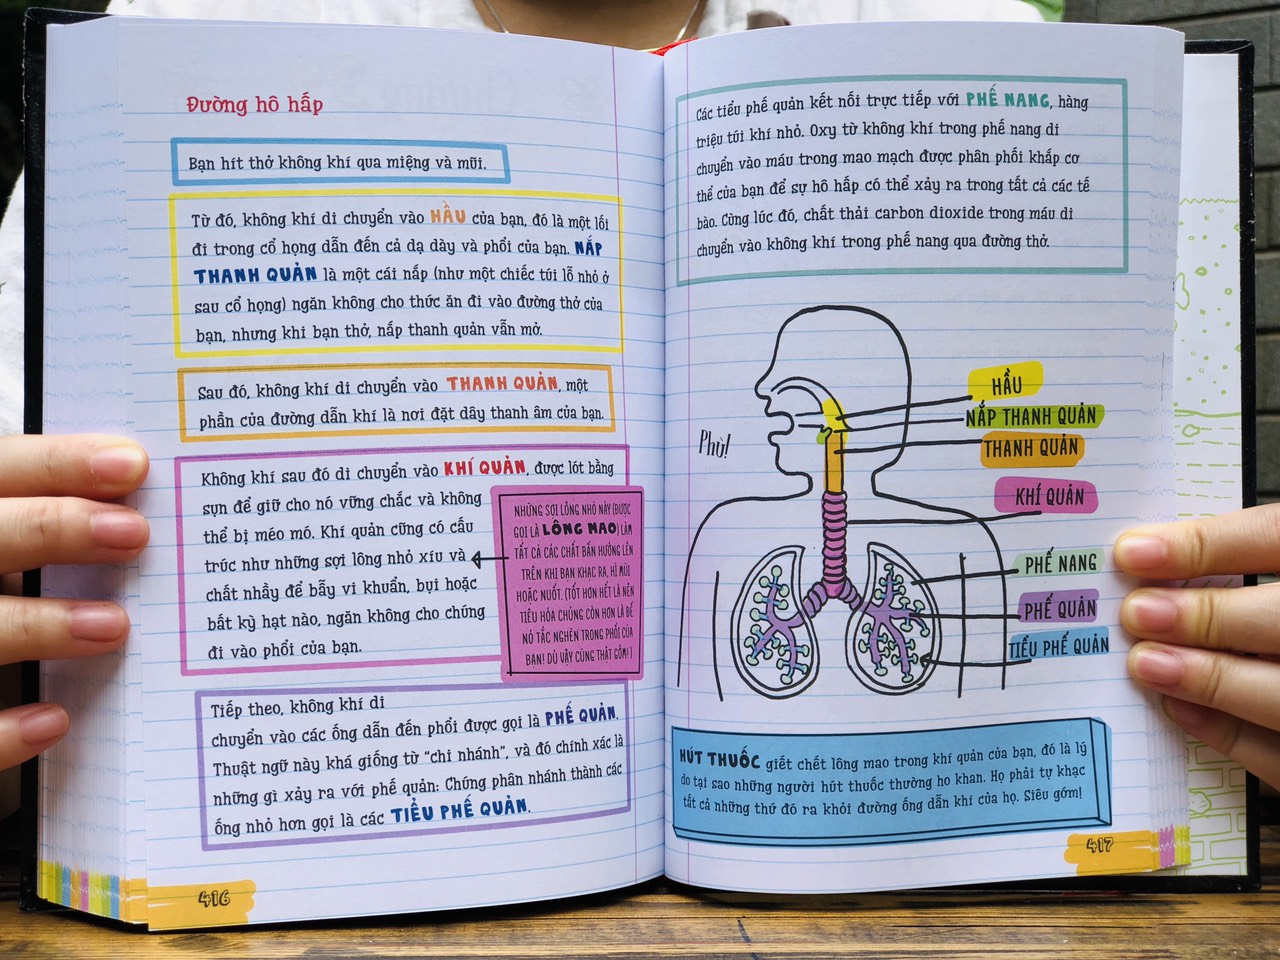 Đường hô hấp
Bạn hít thở không khí qua miệng và mũi.
Từ đó, không khí di chuyển vào HẦU của bạn, đó là một lối
đi trong cổ họng dẫn đến cả dạ dày và phổi của bạn. NẮP
THANH QUẢN là một cái nắp (như một chiếc túi lỗ nhỏ ở
sau cổ họng) ngăn không cho thức ăn đi vào đường thở của
bạn, nhưng khi bạn thở, nắp thanh quản vẫn mở.
Sau đó, không khí di chuyển vào THANH QUẢN, một
phần của đường dẫn khí là nơi đặt dây thanh âm của bạn.
Không khí sau đó di chuyển vào KHÍ QUẢN, được lót bằng
sụn để giữ cho nó vững chắc và không
thể bị méo mó. Khí quản cũng có cấu
trúc như những sợi lông nhỏ xíu và
chất nhầy để bẫy vi khuẩn, bụi hoặc
bất kỳ hạt nào, ngăn không cho chúng
đi vào phổi của bạn.
NHỮNG SỢI LÔNG NHỎ NÀY (ĐƯỢC
GỌI LÀ LÔNG MAO) LÀM
TẤT CẢ CÁC CHẤT BẨN HƯỚNG LÊN
TRÊN KHI BẠN KHẠC RA, HỈ MŨI
HOẶC NUỐT. (TỐT HƠN HẾT LÀ NÊN
TIÊU HÓA CHÚNG CÒN HƠN LÀ ĐỂ
NÓ TẮC NGHẼN TRONG PHỔI CỦA
BẠN! DÙ VẬY CŨNG THẬT GỚM!)
Tiếp theo, không khí di
chuyển vào các ống dẫn đến phổi được gọi là PHẾ QUẢN.
Thuật ngữ này khá giống từ “chi nhánh”, và đó chính xác là
những gì xảy ra với phế quản: Chúng phân nhánh thành các
ống nhỏ hơn gọi là các TIỂU PHẾ QUẢN.
416
Các tiểu phế quản kết nối trực tiếp với PHẾ NANG, hàng
triệu túi khí nhỏ. Oxy từ không khí trong phế nang di
chuyển vào máu trong mao mạch được phân phối khắp cơ
thể của bạn để sự hô hấp có thể xảy ra trong tất cả các tế
bào. Cùng lúc đó, chất thải carbon dioxide trong máu di
chuyển vào không khí trong phế nang qua đường thở.
Phù!
HẦU
NẮP THANH QUẢN
THANH QUẢN
KHÍ QUẢN
PHẾ NANG
PHẾ QUẢN
TIỂU PHẾ QUẢN
HÚT THUỐC giết chết lông mao trong khí quản của bạn, đó là lý
do tại sao những người hút thuốc thường ho khan. Họ phải tự khạc
tất cả những thứ đó ra khỏi đường ống dẫn khí của họ. Siêu gớm!
417